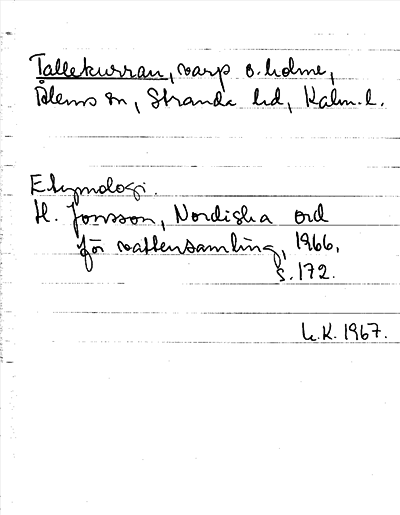 Tallekurran, varp o. holme,
Ålems sn, Stranda hd, Kalm. l.
Etymologi.
H. Jonsson, Nordiska ord
för vattensamling, 1966,
s. 172.
L.K. 1967.